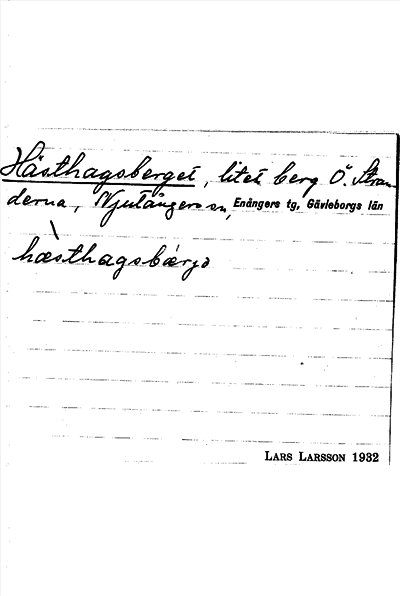 Hästhagsberget, litet berg Ö. Stran-
derna, Njutångers sn, Enångers tg, Gävleborgs län
hæsthagsbærjə
LARS LARSSON 1932